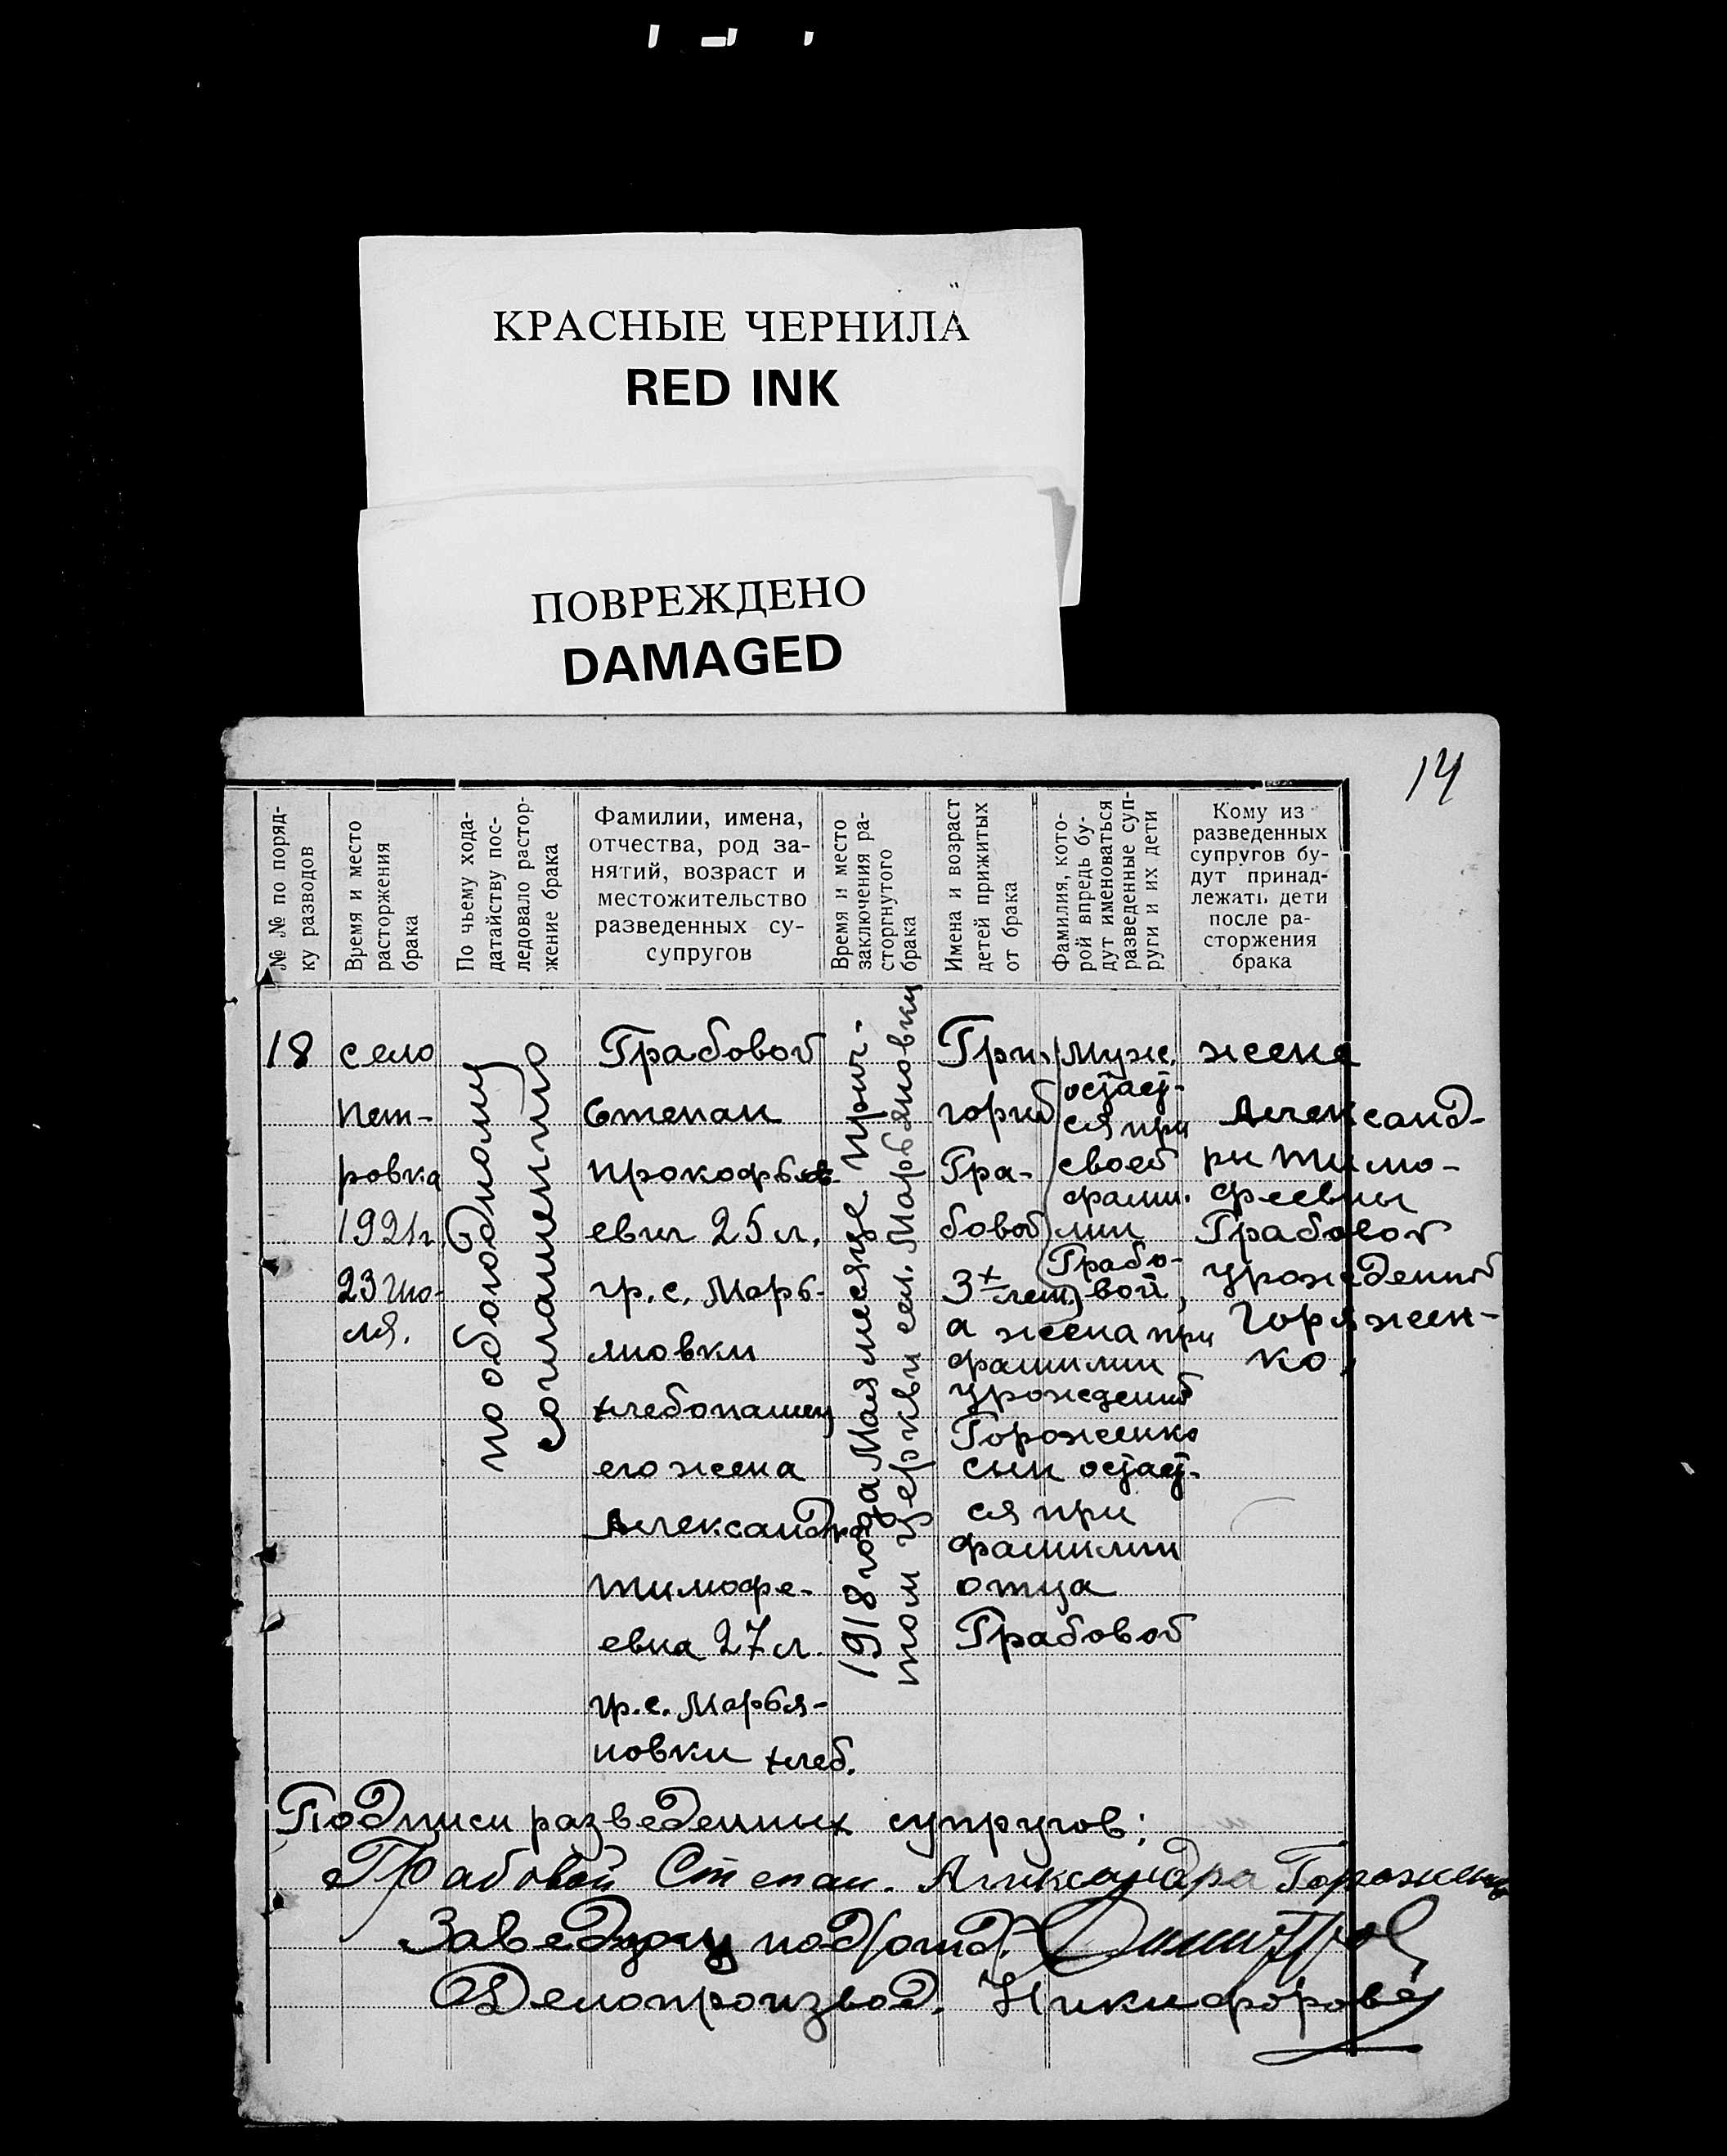 КРАСНЫЕ ЧЕРНИЛА
RED INK
ПОВРЕЖДЕНО
DAMAGED
14
№ № по поряд-
ку разводов
Время и место
расторжения
брака
По чьему хода-
датайству пос-
ледовало растор-
жение брака
Фамилии, имена,
отчества, род за-
нятий, возраст и
местожительство
разведенных су-
супругов
Время и место
заключения ра-
сторгнутого
брака
Имена и возраст
детей прижитых
от брака
Фамилия, кото-
рой впредь бу-
дут именоваться
разведенные суп-
руги и их дети
Кому из
разведенных
супругов бу-
дут принад-
лежать дети
после ра-
сторжения
брака
18
село
Пет-
ровка
1921г.
23 Ию-
ля.
по обоюдному
соглашению
Грабовой
Степан
Прокофьев-
евич 25 л.
гр. с. Марь-
яновки
хлебопашец
его жена
Александра
Тимофе-
евна 27 л.
гр. с. Марья-
новки хлеб.
1918 года Мая месяце Прич-
том церкви сел. Марьяновки
Гри-
горий
Гра-
бовой
3х лет
Муж.
остает-
ся при
своей
фами-
лии
Грабо-
вой,
а жена при
фамилии
урожденной
Гороженко
сын остает-
ся при
фамилии
отца
Грабовой
жене
Александ-
ри Тимо-
феевны
Грабовой
урожденной
Горожен-
ко,
Подписи разведенных супругов:
Грабовой Степан. Александра Гороженко
Заведующ подотд.
Делопроизвод. Никифоров